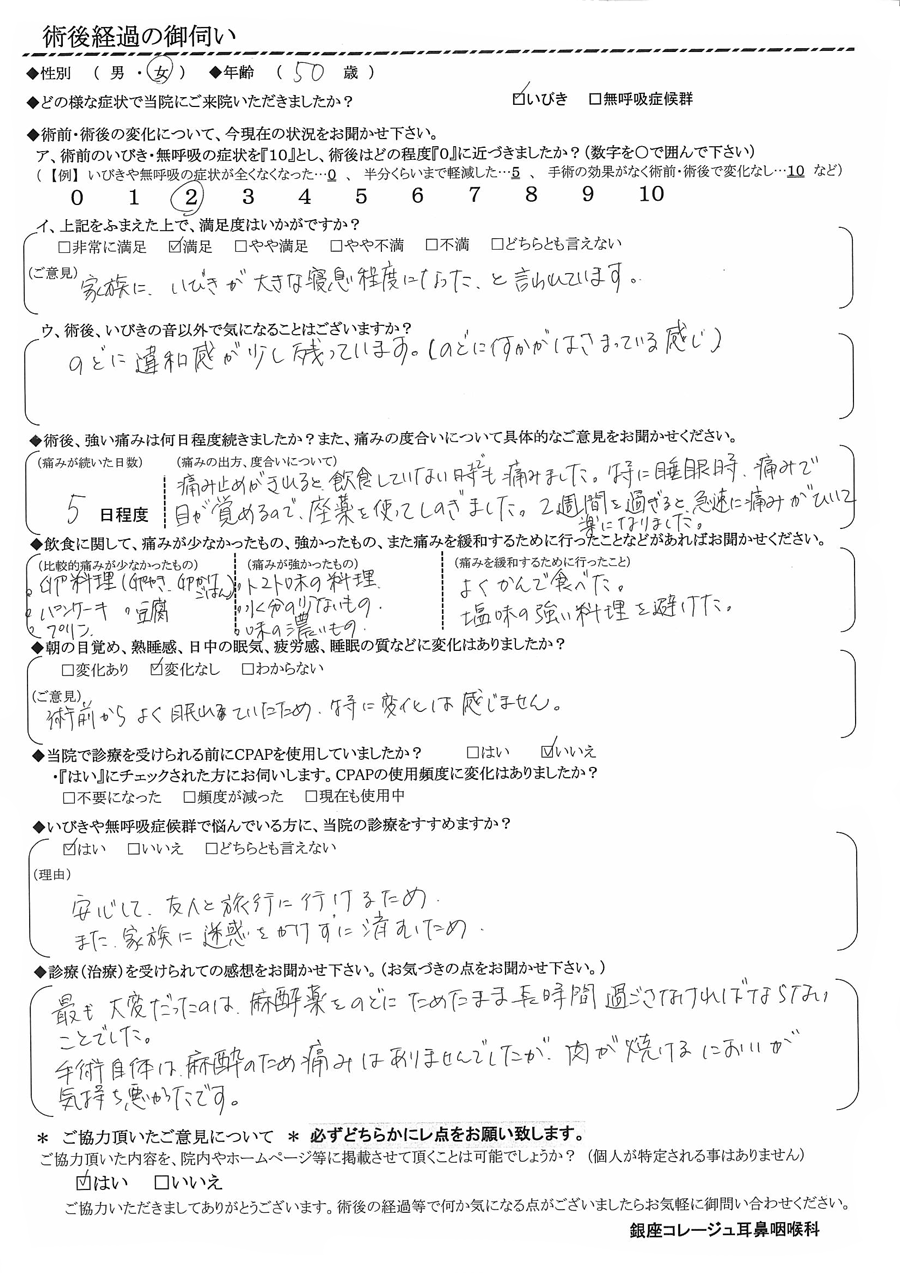 術後経過の御伺い
◆性別 （ 男 ・ 女 ） ◆年齢 （ 50 歳 ）
◆どの様な症状で当院にご来院いただきましたか？ ☑いびき □無呼吸症候群
◆術前・術後の変化について、今現在の状況をお聞かせ下さい。
ア、術前のいびき・無呼吸の症状を『10』とし、術後はどの程度『0』に近づきましたか？（数字を〇で囲んで下さい）
（【例】 いびきや無呼吸の症状が全くなくなった…0 、 半分くらいまで軽減した…5 、 手術の効果がなく術前・術後で変化なし…10 など）
0 1 2 3 4 5 6 7 8 9 10
イ、上記をふまえた上で、満足度はいかがですか？
□非常に満足 ☑満足 □やや満足 □やや不満 □不満 □どちらとも言えない
（ご意見）
家族に、いびきが大きな寝息程度になった、と言われています。
ウ、術後、いびきの音以外で気になることはございますか？
のどに違和感が少し残っています。（のどに何かがはさまっている感じ）
◆術後、強い痛みは何日程度続きましたか？また、痛みの度合いについて具体的なご意見をお聞かせください。
（痛みが続いた日数） （痛みの出方、度合いについて）
5 日程度
痛み止めがきれると飲食していない時でも痛みました。特に睡眠時、痛みで
目が覚めるので、座薬を使ってしのぎました。2週間を過ぎると、急速に痛みがひいて
楽になりました。
◆飲食に関して、痛みが少なかったもの、強かったもの、また痛みを緩和するために行ったことなどがあればお聞かせください。
（比較的痛みが少なかったもの） （痛みが強かったもの） （痛みを緩和するために行ったこと）
。卵料理（卵やき、卵かけごはん）
。パンケーキ 。豆腐
。プリン
。トマト味の料理
。水分の少ないもの
。味の濃いもの
よくかんで食べた。
塩味の強い料理を避けた。
◆朝の目覚め、熟睡感、日中の眠気、疲労感、睡眠の質などに変化はありましたか？
□変化あり ☑変化なし □わからない
（ご意見）
術前からよく眠れていたため、特に変化は感じません。
◆当院で診療を受けられる前にCPAPを使用していましたか？ □はい ☑いいえ
・『はい』にチェックされた方にお伺いします。CPAPの使用頻度に変化はありましたか？
□不要になった □頻度が減った □現在も使用中
◆いびきや無呼吸症候群で悩んでいる方に、当院の診療をすすめますか？
☑はい □いいえ □どちらとも言えない
（理由）
安心して、友人と旅行に行けるため.
また、家族に迷惑をかけずに済むため.
◆診療（治療）を受けられての感想をお聞かせ下さい。（お気づきの点をお聞かせ下さい。）
最も大変だったのは、麻酔薬をのどにためたまま長時間過ごさなければならない
ことでした。
手術自体は、麻酔のため痛みはありませんでしたが、肉が焼けるにおいが
気持ち悪かったです。
＊ ご協力頂いたご意見について ＊ 必ずどちらかにレ点をお願い致します。
ご協力頂いた内容を、院内やホームページ等に掲載させて頂くことは可能でしょうか？ （個人が特定される事はありません）
☑はい □いいえ
ご協力いただきましてありがとうございます。術後の経過等で何か気になる点がございましたらお気軽に御問い合わせください。
銀座コレージュ耳鼻咽喉科